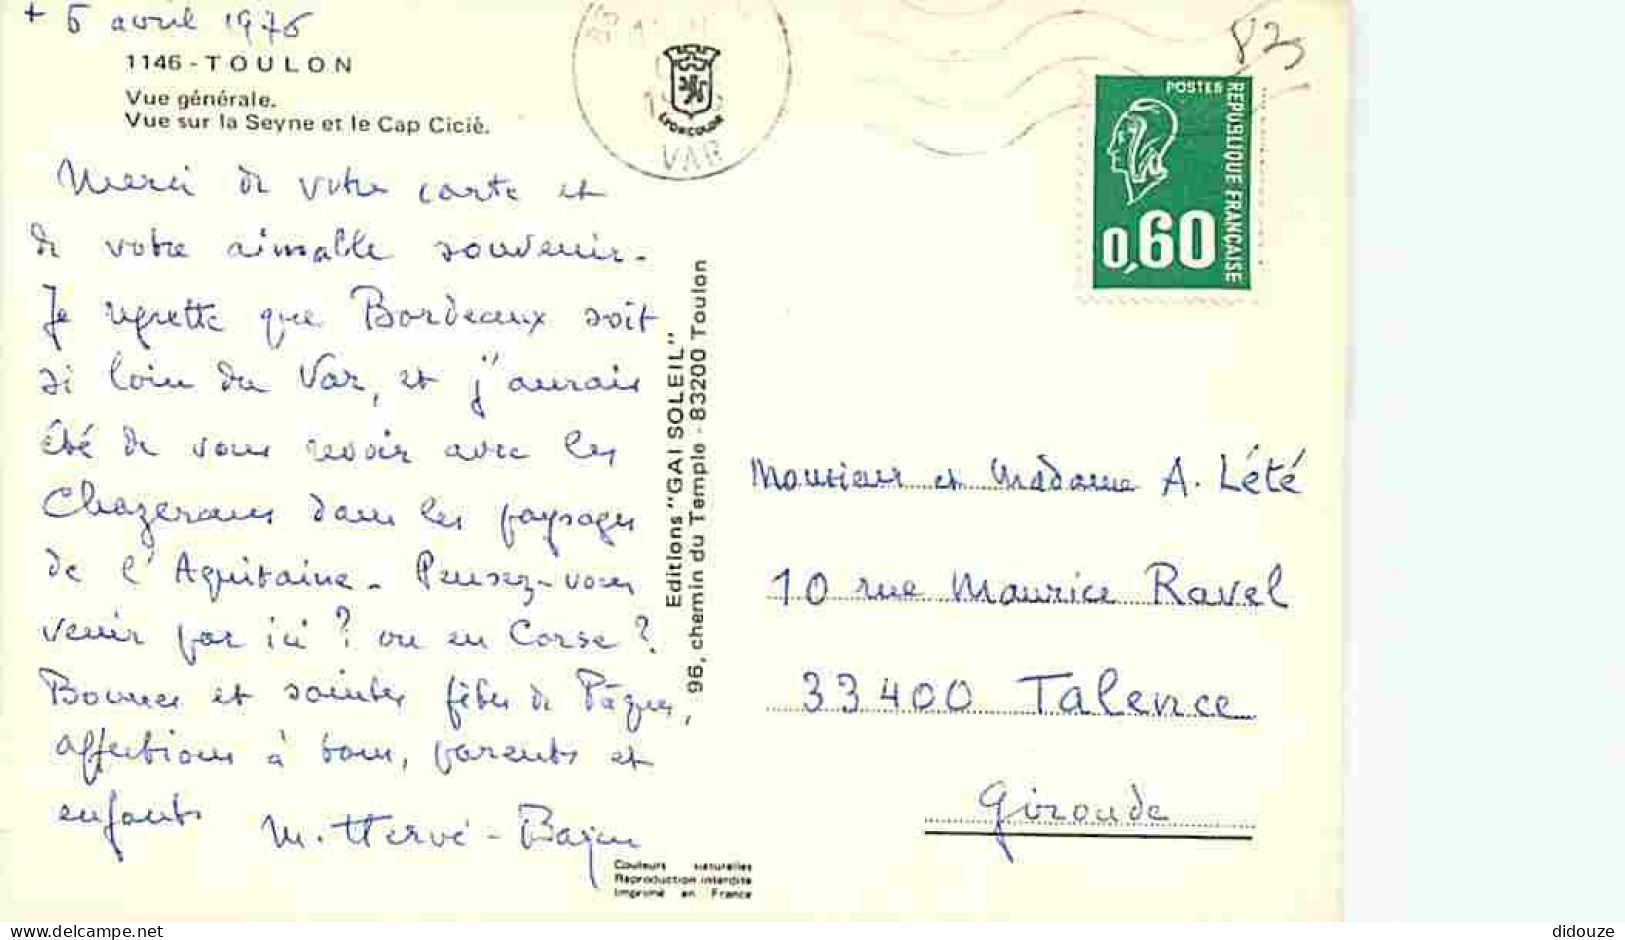 + 5 avril 1976
1146 - TOULON
Vue générale.
Vue sur la Seyne et le Cap Cicié.
Merci de votre carte et
de votre aimable souvenir.
Je regrette que Bordeaux soit
si loin du Var, et j'aurais
été de vous revoir avec les
dans les paysages
de l'Aquitaine. Pensez-vous
venir par ici ? ou en Corse ?
Bonnes et saintes fêtes de Pâques,
affections à tous, parents et
enfants
M. Hervé-
Editions "GAI SOLEIL"
96, chemin du Temple - 83200 Toulon
Couleurs naturelles
Reproduction interdite
Imprimé en France
LYONCOLOR
VAR
83
POSTES
REPUBLIQUE FRANÇAISE
0,60
Monsieur et Madame A. Lété
10 rue Maurice Ravel
33400 Talence
Gironde
didouze